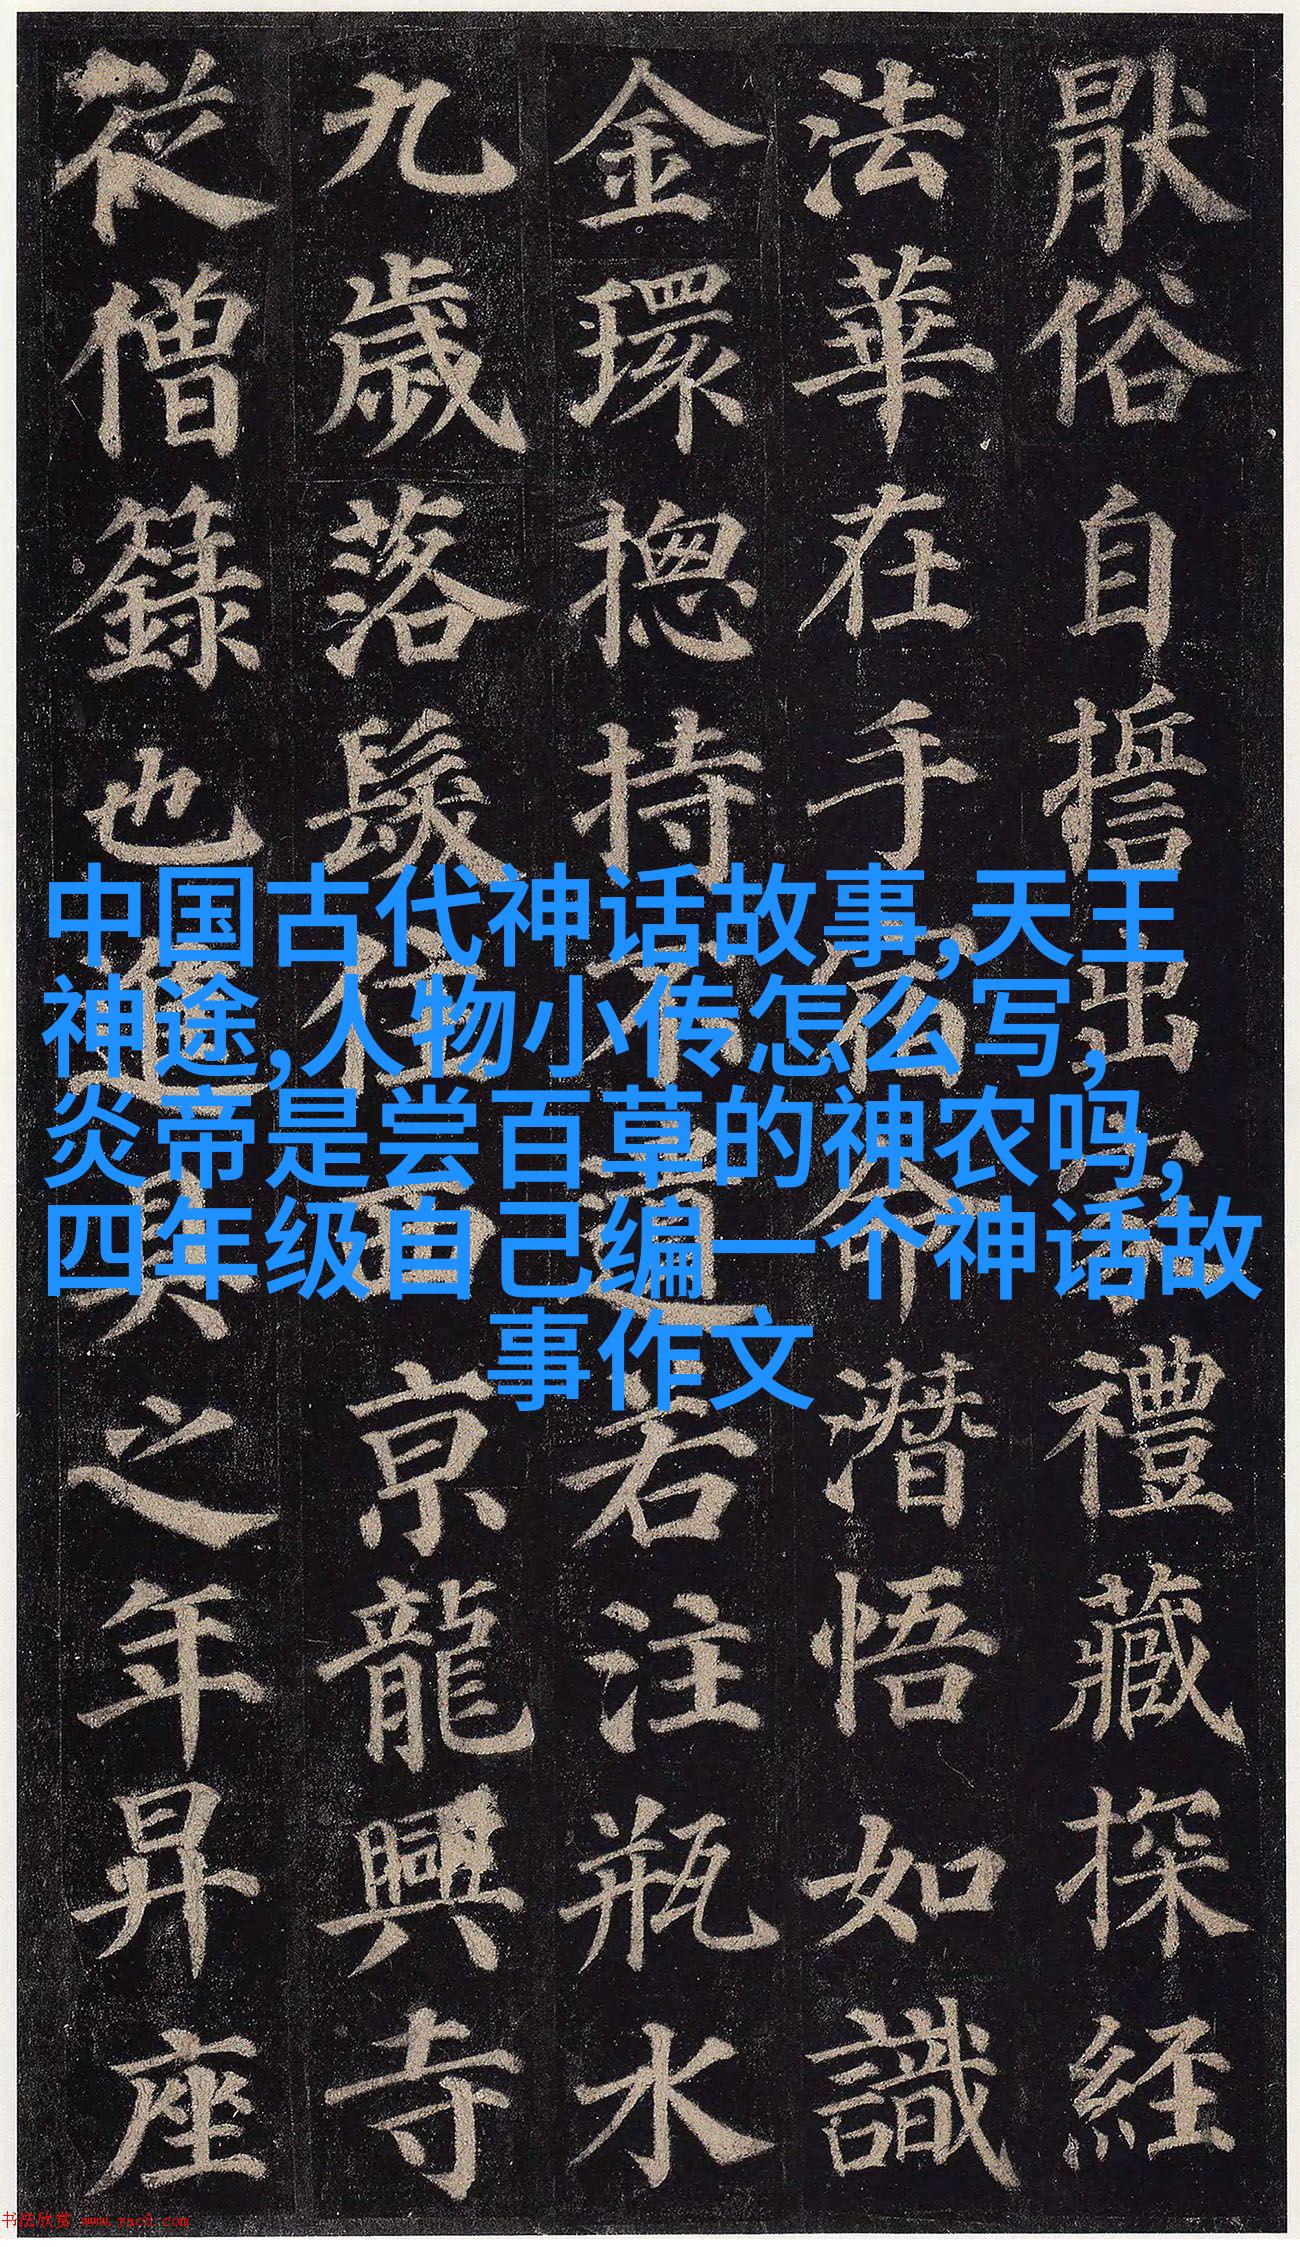 猒俗自誓出家禮藏探經
法華在手宿命潛悟如識
金環揔持不遺若注瓶水
九歲落髮住西京龍興寺
從僧籙也進具之年昇座
中国古代神话故事,天王
神途,人物小传怎么写,
炎帝是尝百草的神农吗,
四年级自己编一个神话故
事作文
书法欣赏 www.yac8.com